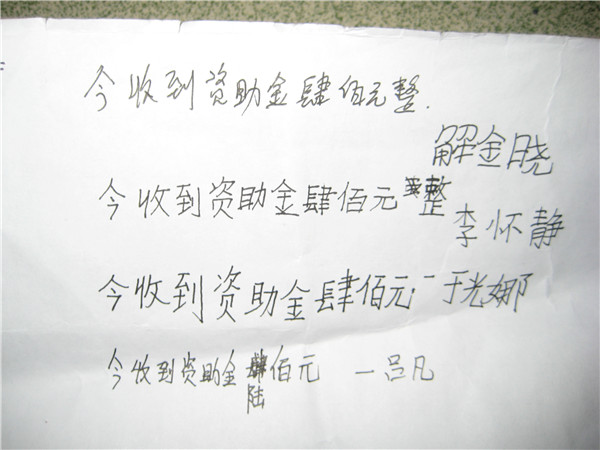 今收到资助金肆佰元整.
解金晓
今收到资助金肆佰元整
李怀静
今收到资助金肆佰元.一于光娜
今收到资助金肆佰元 一吕凡
陆